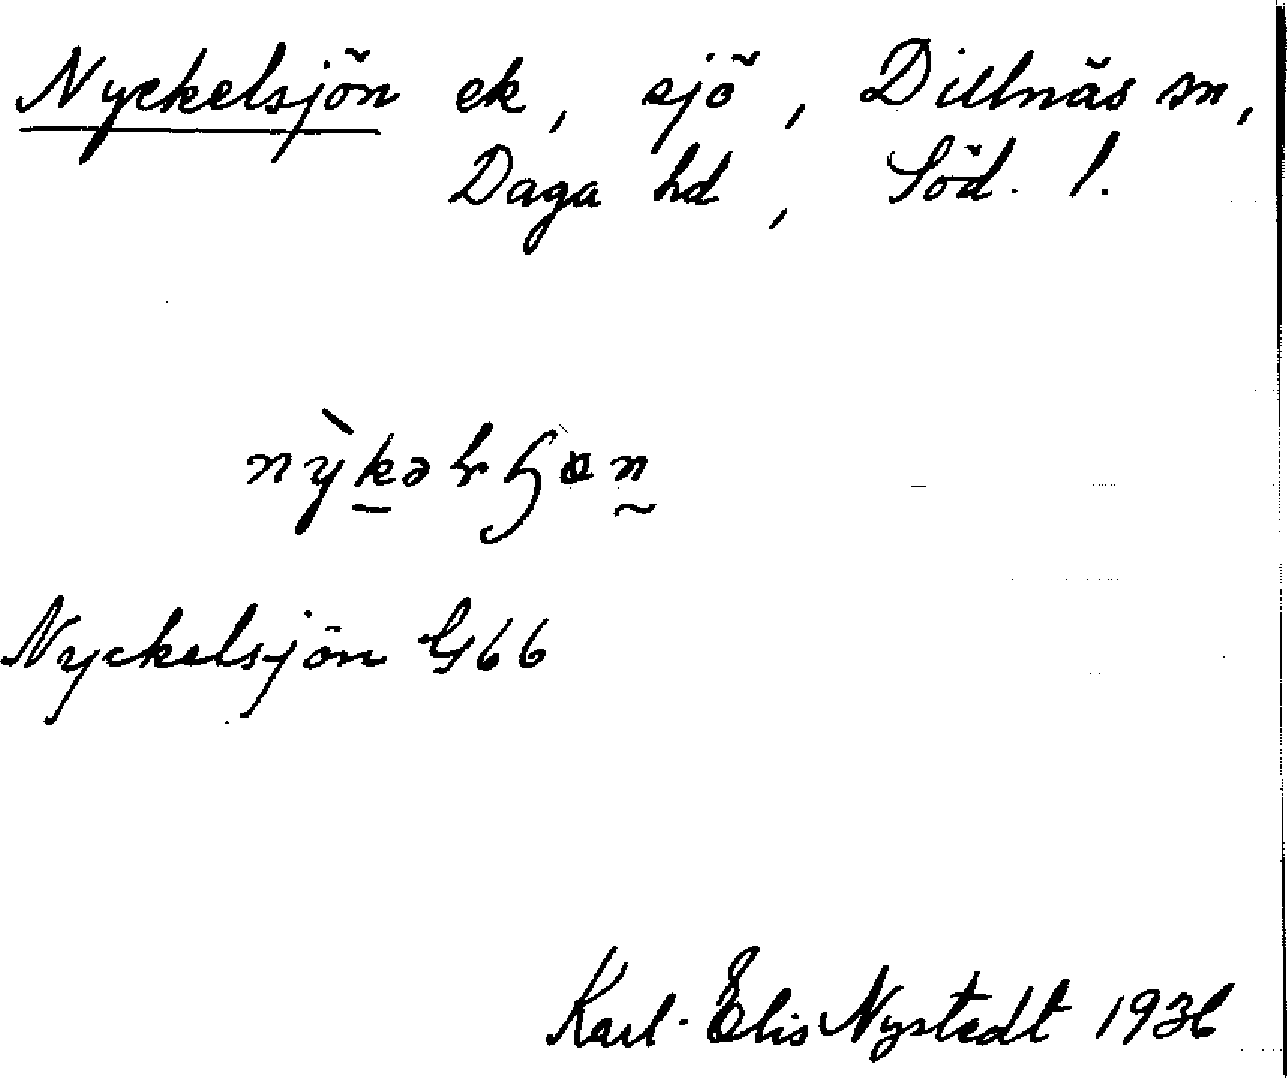 Nyckelsjön ek, sjö, Dillnäs sn,
Daga hd, Söd. l.
Nyckelsjön G66
Karl-Elis Nystedt 1936